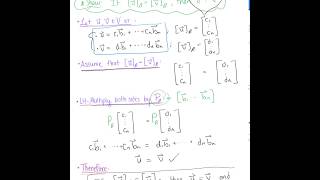 Show: If [u]β = [v]β, then
• Let u, v ∈ V or
• u = c₁b₁ + ⋯ cₙbₙ , [u]β = [c₁ ⋮ cₙ]
• v = d₁b₁ + ⋯ dₙbₙ [v]β = [d₁ ⋮ dₙ]
• Assume that [u]β = [v]β [c₁ ⋮ cₙ] = [d₁ ⋮ dₙ]
Multiply both sides by Pβ = [b₁ ⋯ bₙ]
Pβ [c₁ ⋮ cₙ] = Pβ [d₁ ⋮ dₙ]
c₁b₁ + ⋯ cₙbₙ = d₁b₁ + ⋯ dₙbₙ
u = v ✓
• Therefore
then u = v and